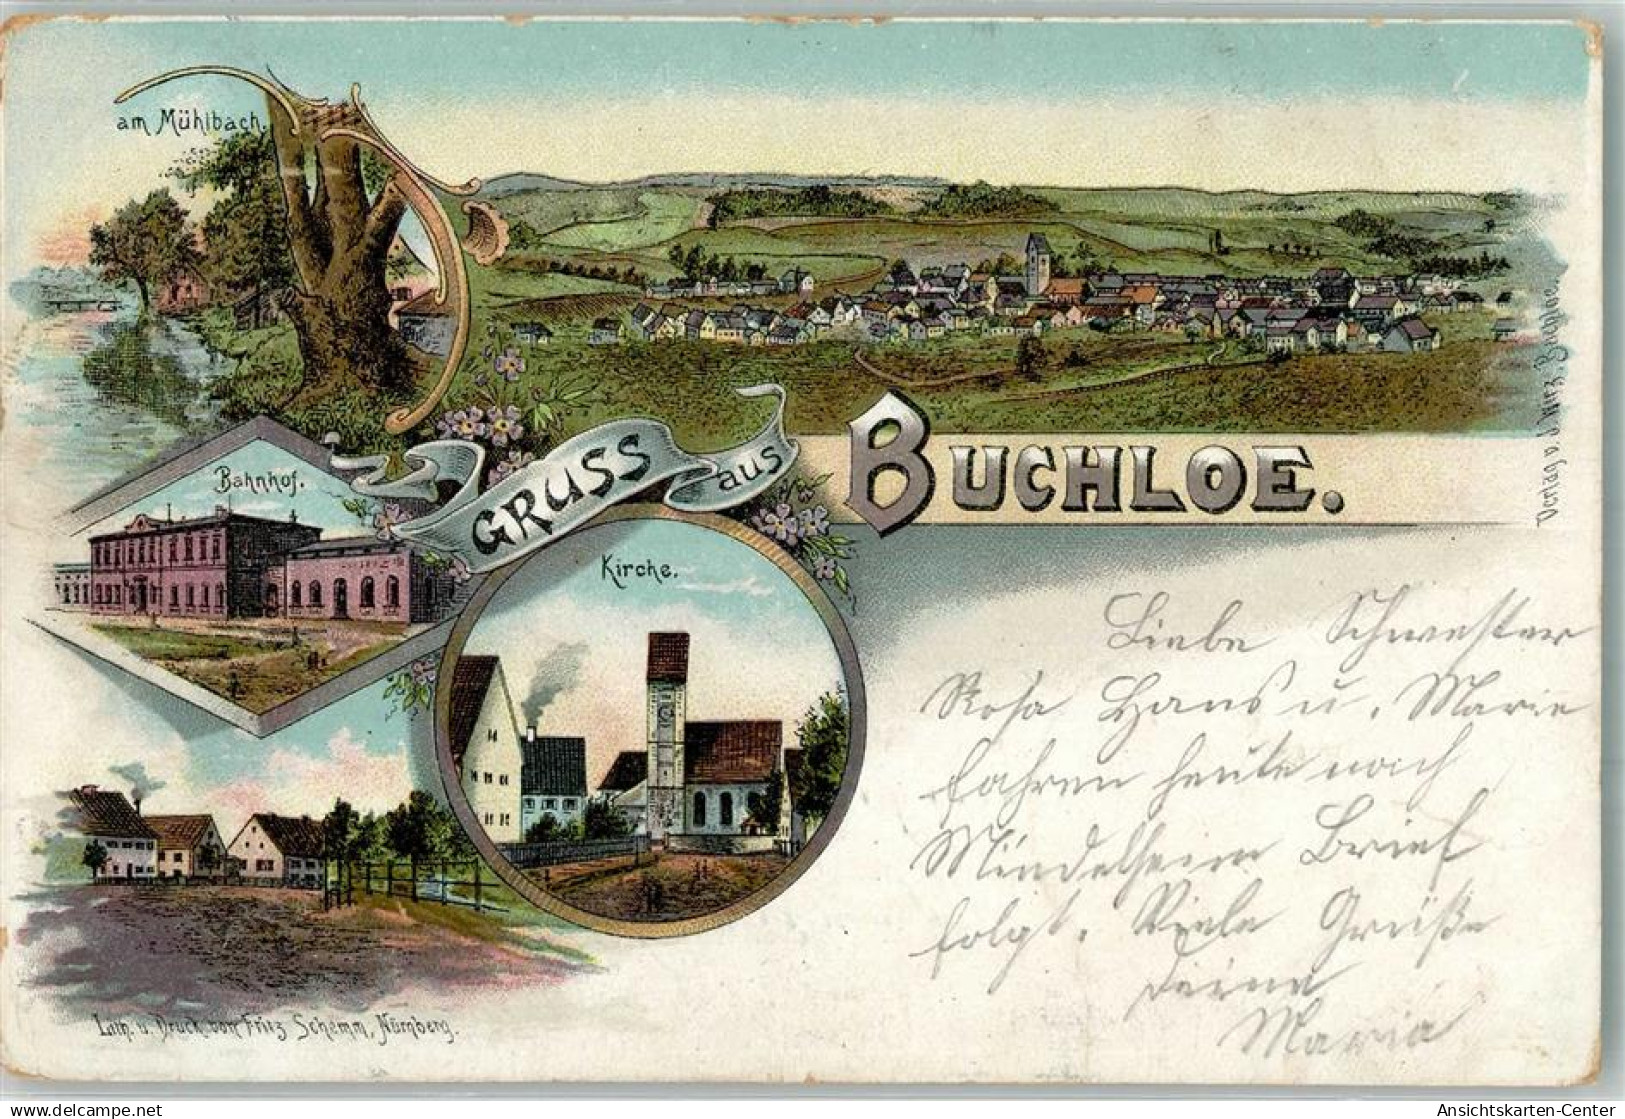 am Mühlbach.
Bahnhof.
GRUSS aus BUCHLOE.
Kirche.
Liebe Schwester
Rosa Hans u. Marie
fahren heute noch
Mindelheim Brief
folgt. Viele Grüße
Deine
Maria
Verlag v. Buchloe.
Lith. u. Druck von Fritz Schemm, Nürnberg.
www.delcampe.net
Ansichtskarten-Center